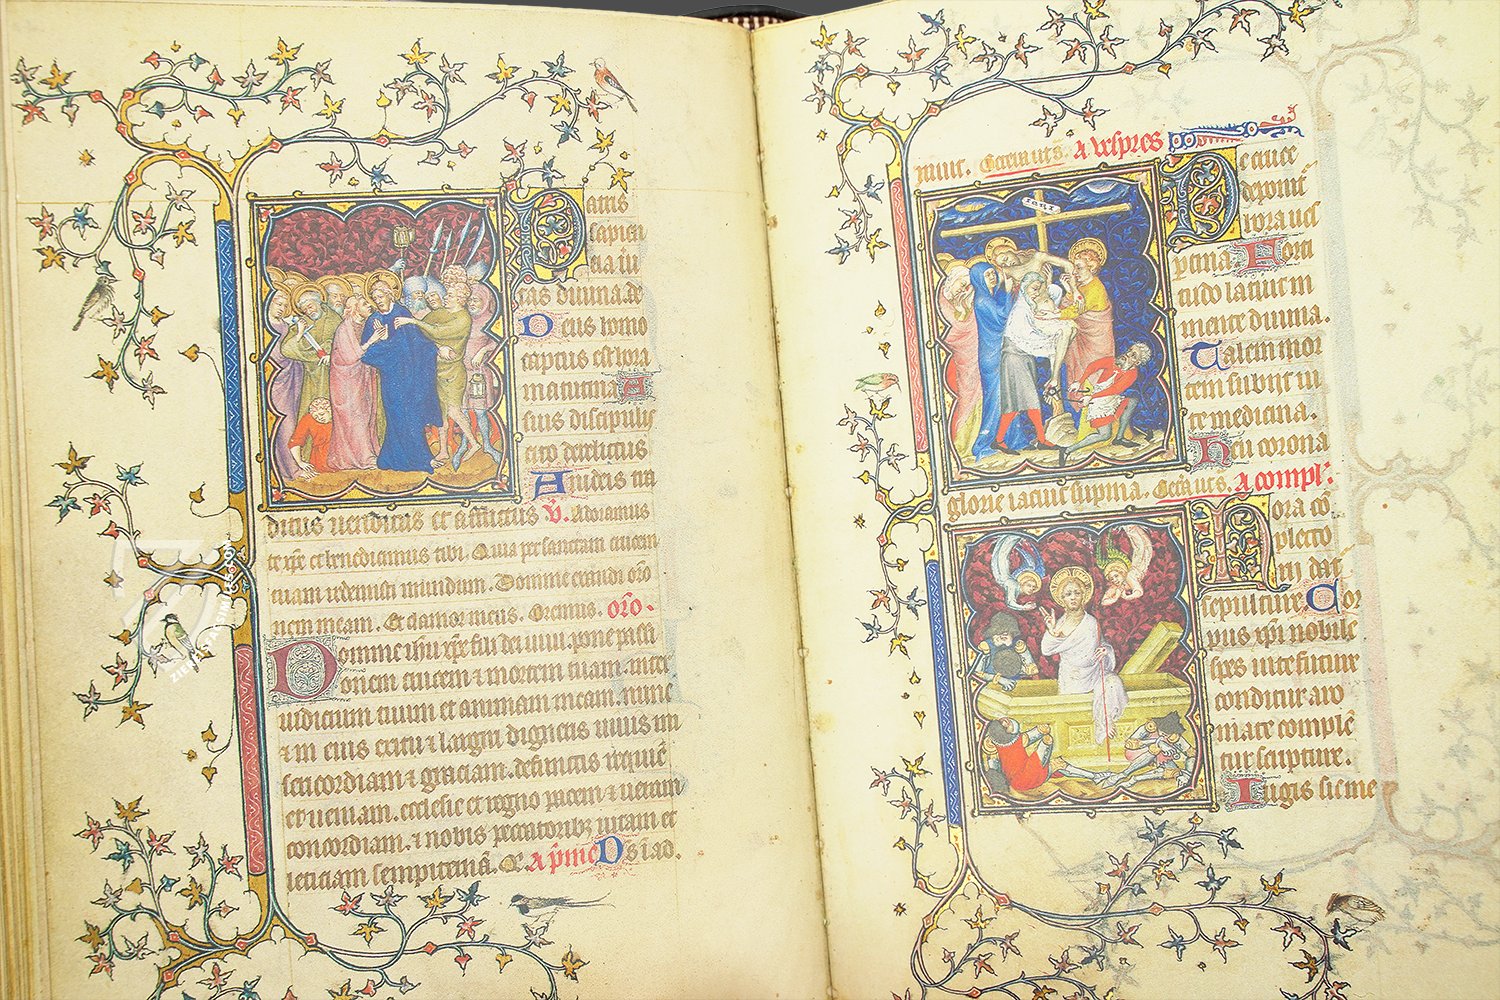 Patris
sapien
cia ue
ritas diuina.
Deus homo
captus est hora
matutina A
suis discipulis
cito derelictus
A iudeis tra
ditus uenditus et afflictus V. Adoramus
te xpe et benedicimus tibi. Quia per sanctam crucem
tuam redemisti mundum. Domine exaudi oro
nem meam. Et clamor meus. Oremus. oro.
Domine ihu xpe fili dei uiui. pone passi
onem crucem et mortem tuam inter
iudicium tuum et animam meam. nunc
et in
misericordiam et graciam. defunctis requie
et ueniam. ecclesie et regno pacem et ueram
concordiam. et nobis peccatoribus uitam et
leticiam sempiternam. A pme Ds i ad.
Gloria uts. A vespres
De cruce
deponit
hora ues
pertina Forti
tudo latuit in
mente diuina.
Talem mor
tem subiit ui
te medicina.
Heu corona
glorie iacuit supina. Gloria uts. A compl.
Hora co
pleto
rij dat
sepulture Cor
pus xpi nobile
spes uite future
conditur aro
mate comple
tur scripture.
Iugis sit me
ZIEREIS FACSIMILES.COM